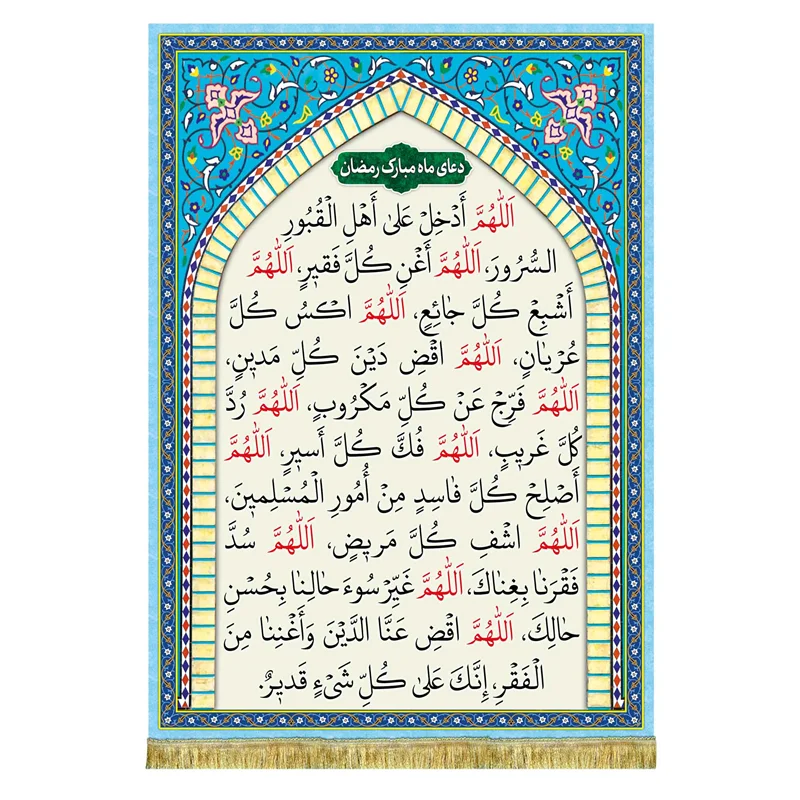 دعای ماه مبارک رمضان
اَللّٰهُمَّ أَدْخِلْ عَلىٰ أَهْلِ الْقُبُورِ
السُّرُورَ، اَللّٰهُمَّ أَغْنِ كُلَّ فَقيرٍ، اَللّٰهُمَّ
أَشْبِعْ كُلَّ جٰائِعٍ، اَللّٰهُمَّ اكْسُ كُلَّ
عُرْيٰانٍ، اَللّٰهُمَّ اقْضِ دَيْنَ كُلِّ مَدينٍ،
اَللّٰهُمَّ فَرِّجْ عَنْ كُلِّ مَكْرُوبٍ، اَللّٰهُمَّ رُدَّ
كُلَّ غَريبٍ، اَللّٰهُمَّ فُكَّ كُلَّ أَسيرٍ، اَللّٰهُمَّ
أَصْلِحْ كُلَّ فٰاسِدٍ مِنْ أُمُورِ الْمُسْلِمينَ،
اَللّٰهُمَّ اشْفِ كُلَّ مَريضٍ، اَللّٰهُمَّ سُدَّ
فَقْرَنٰا بِغِنٰاكَ، اَللّٰهُمَّ غَيِّرْ سُوءَ حٰالِنٰا بِحُسْنِ
حٰالِكَ، اَللّٰهُمَّ اقْضِ عَنَّا الدَّيْنَ وَأَغْنِنٰا مِنَ
الْفَقْرِ، إِنَّكَ عَلىٰ كُلِّ شَيْءٍ قَديرٌ.